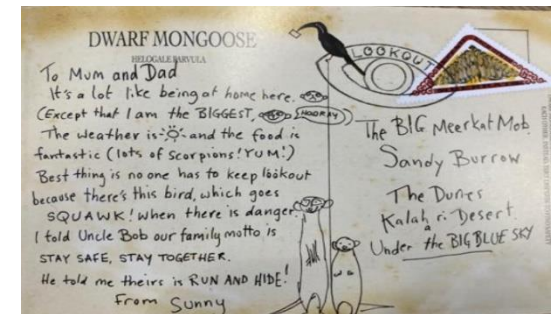 DWARF MONGOOSE
HELOGALE PARVULA
To Mum and Dad
It's a lot like being at home here.
(Except that I am the BIGGEST,
HOORAY
The weather is and the food is
fantastic (lots of scorpions! YUM!)
Best thing is no one has to keep lookout
because there's this bird, which goes
SQUAWK! When there is danger.
I told Uncle Bob our family motto is
STAY SAFE, STAY TOGETHER.
He told me theirs is RUN AND HIDE!
From Sunny
LOOKOUT
The BIG Meerkat Mob
Sandy Burrow
The Dunes
Kalahari Desert
Under the BIG BLUE SKY